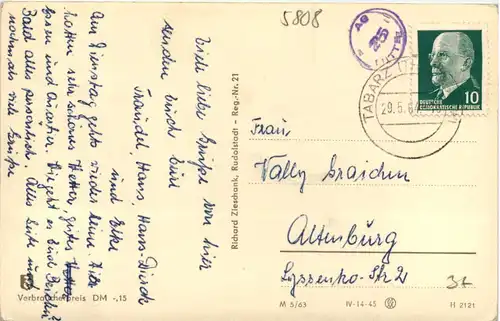 5808
AG
25
TABARZ (TH
29.5.64
10
DEUTSCHE
DEMOKRATISCHE REPUBLIK
Viele liebe Grüße von hier
senden durch Eure
Traudel, Hans, Hans-Dirk
und Elke
Am Dienstag geht's wieder heim. Wir
hatten sehr schönes Wetter, gutes
Essen und Quartier. Wie geht es Euch
Bald alles persönlich. Alles Gute und
nochmals viele Grüße
Frau
Vally
Altenburg
Lyssenko-Str 2
Richard Zieschank, Rudolstadt - Reg.-Nr. 21
Verbraucherpreis DM -,15
M 5/63
IV-14-45
H 2121